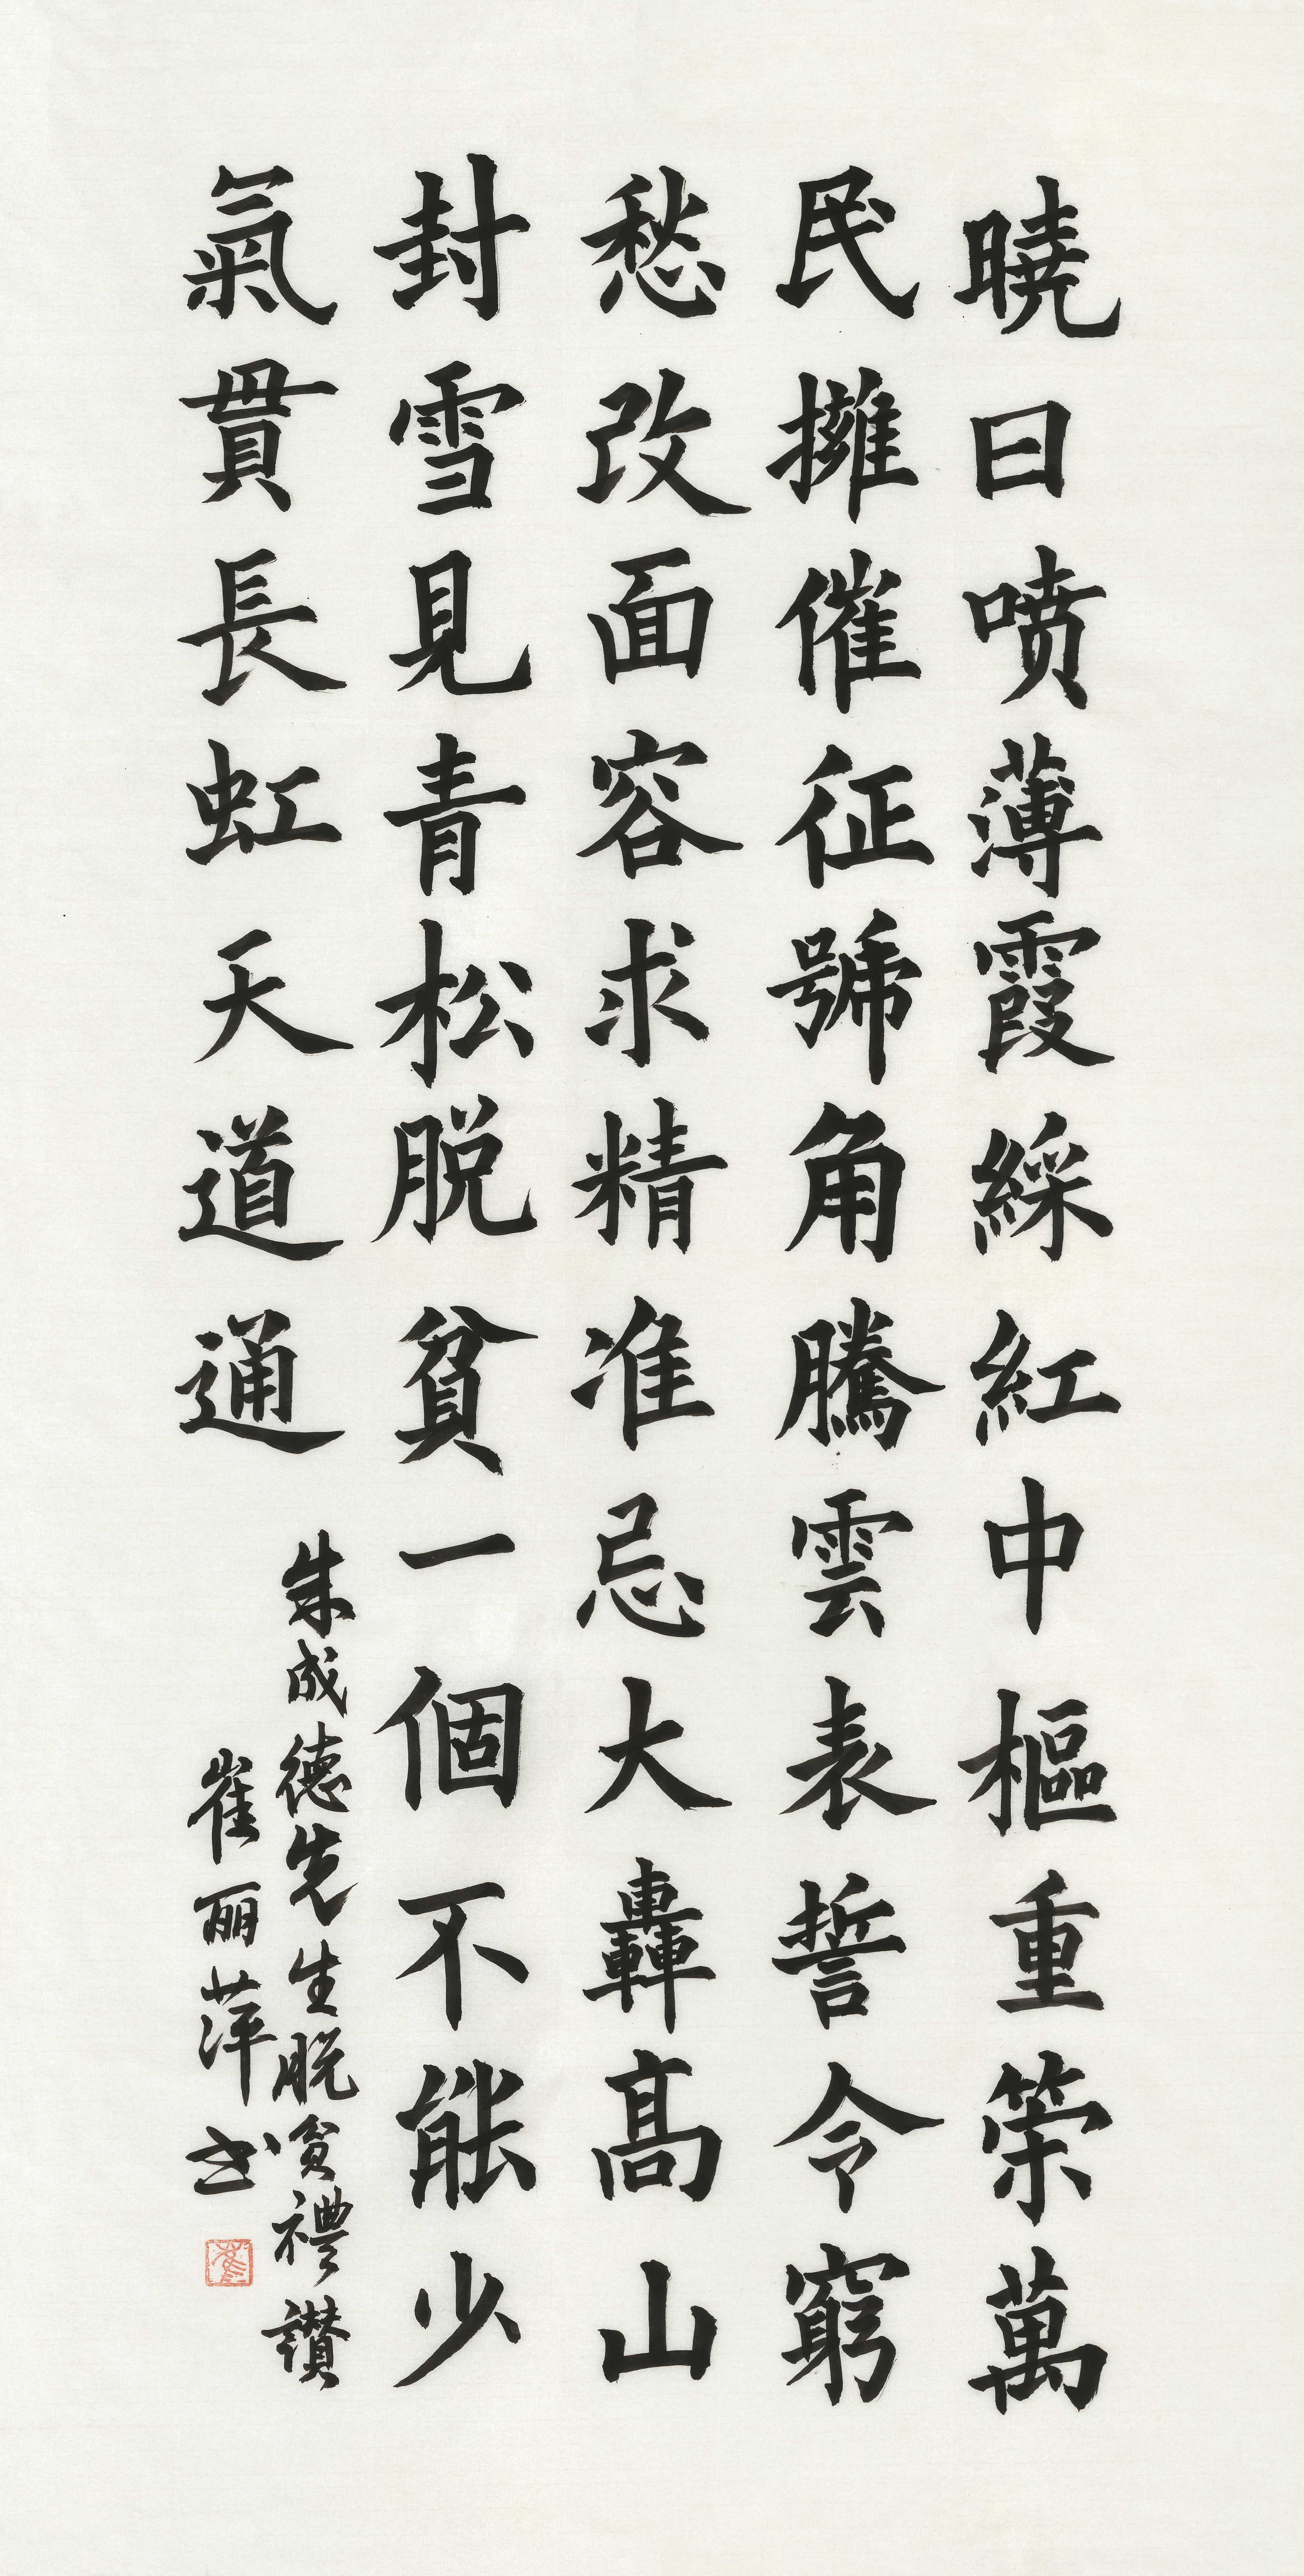 曉日喷薄霞綵紅中樞重策萬
民擁催征號角騰雲表誓令窮
愁改面容求精准忌大轟高山
封雪見青松脱貧一個不能少
氣貫長虹天道通
朱成德先生脱貧禮讚
崔丽萍书